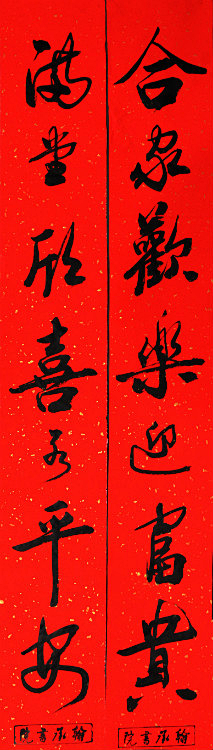 合家歡樂迎富貴
滿堂欣喜平安
翰承書院
翰承書院